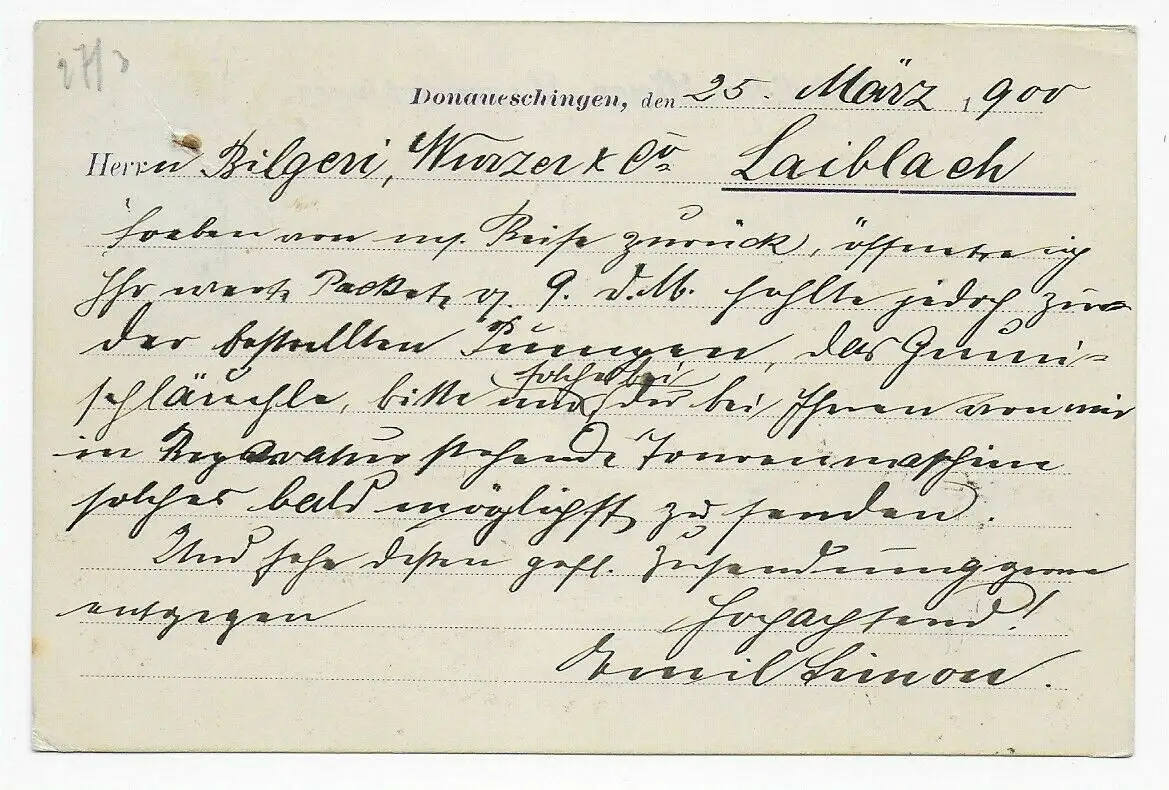 27/3
Donaueschingen, den 25. März 1900
Herrn Bilgeri, Wurzer & Co Laiblach
Soeben von m. Reise zurück, öffnete ich
Ihr wert. Packet v. 9. d. M. fehlte jedoch zur
der bestellten Pumpen, das Gumi-
schläuchle, bitte und solches bei der bei Ihnen von mir
in Reparatur stehende Tourenmaschine
solches bald möglichst zu senden.
Und sehe dessen gefl. Zusendung gerne
entgegen Hochachtend!
Emil Simon.